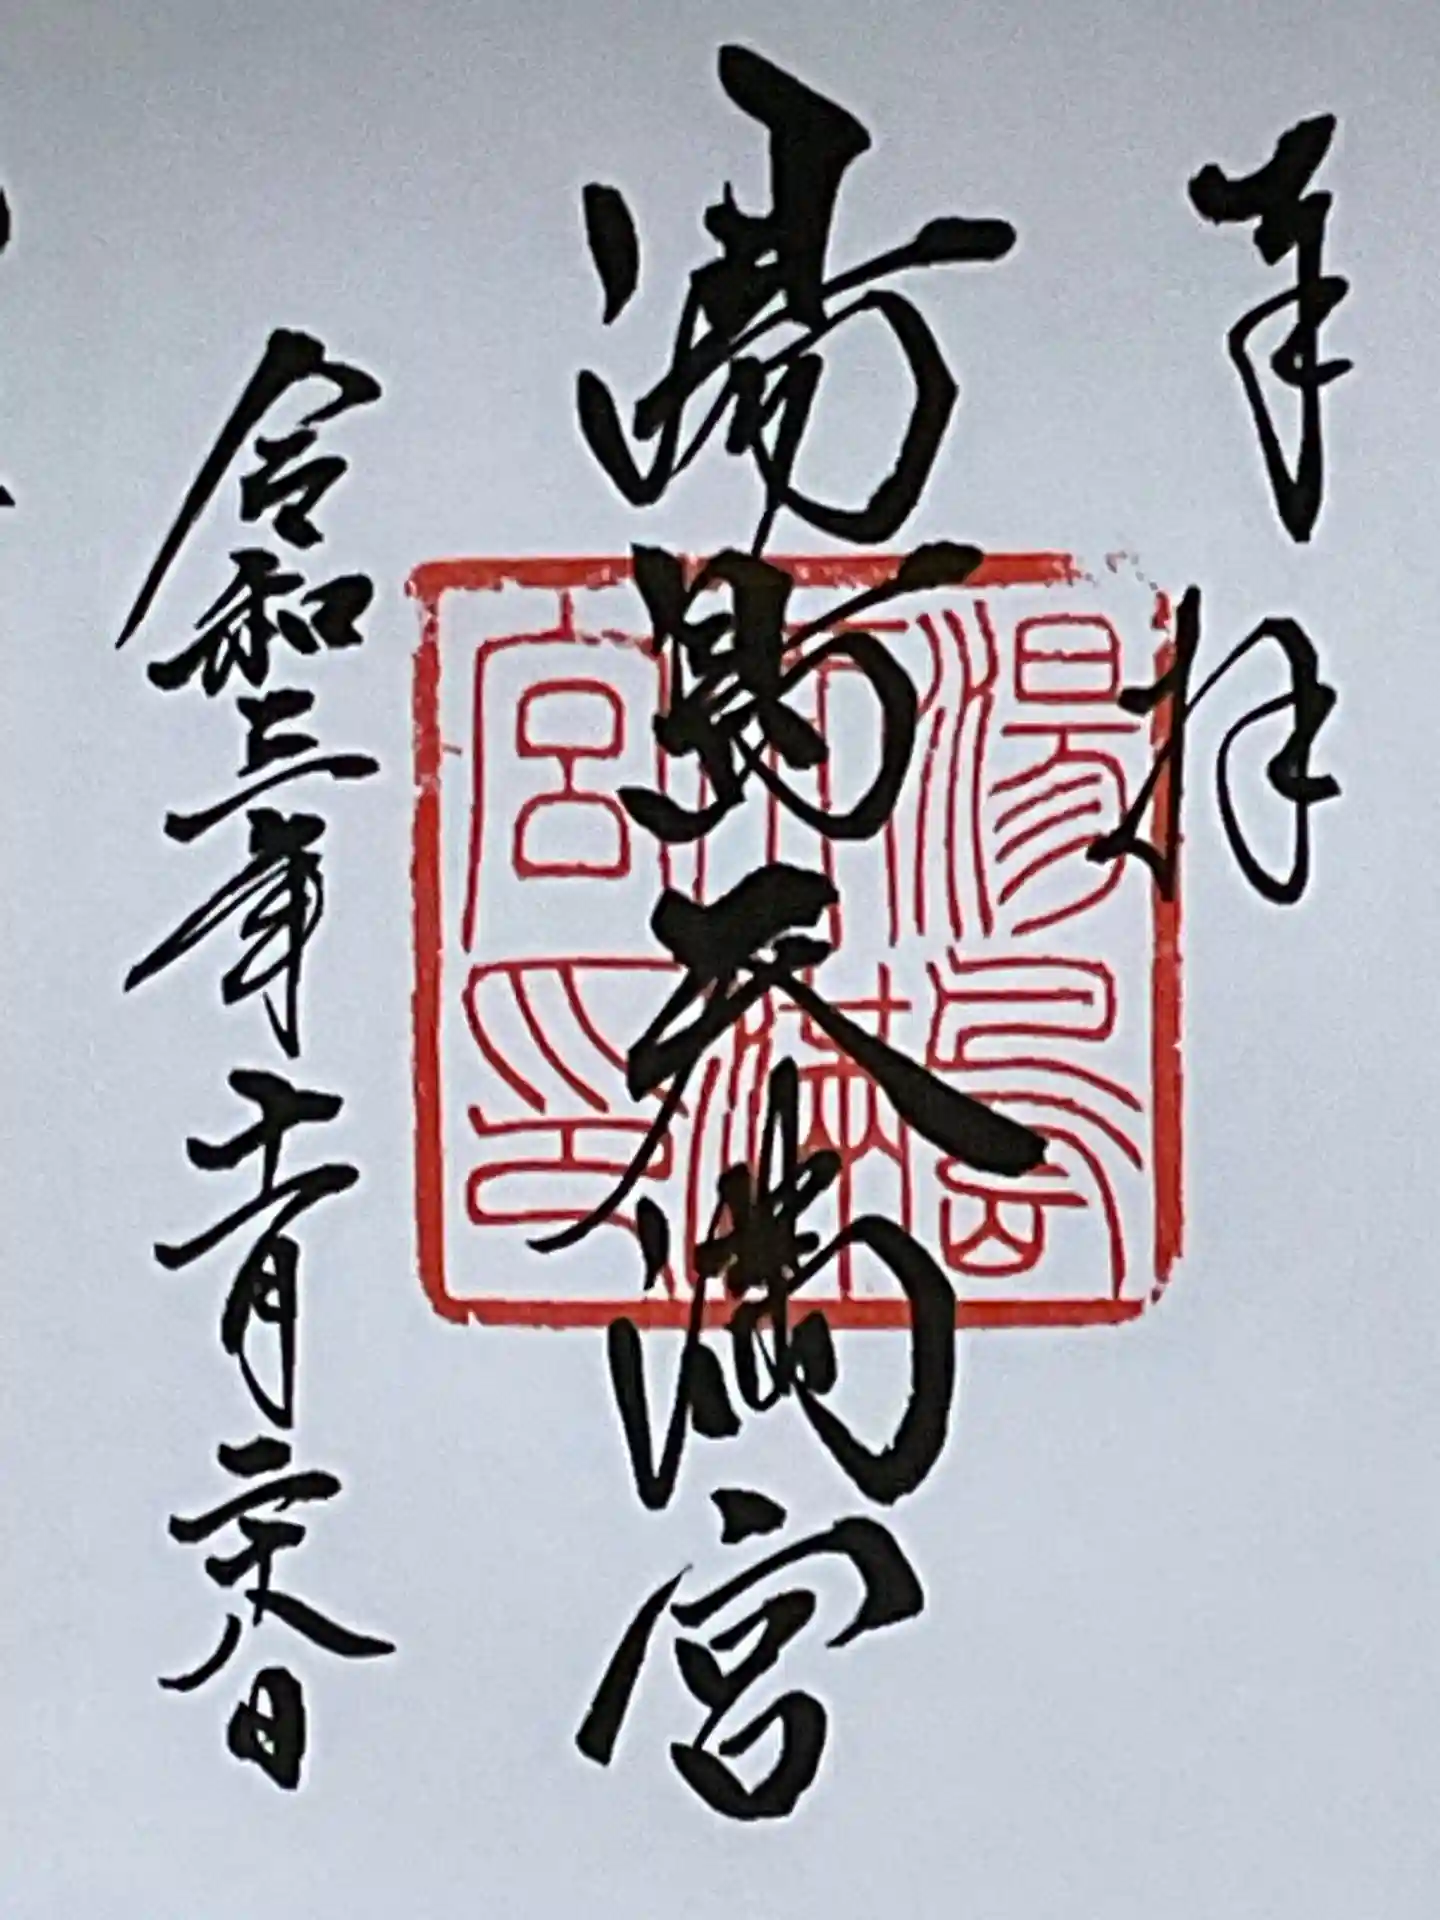 奉拝
湯島天満宮
令和三年十一月二十八日
湯島
天満
宮印